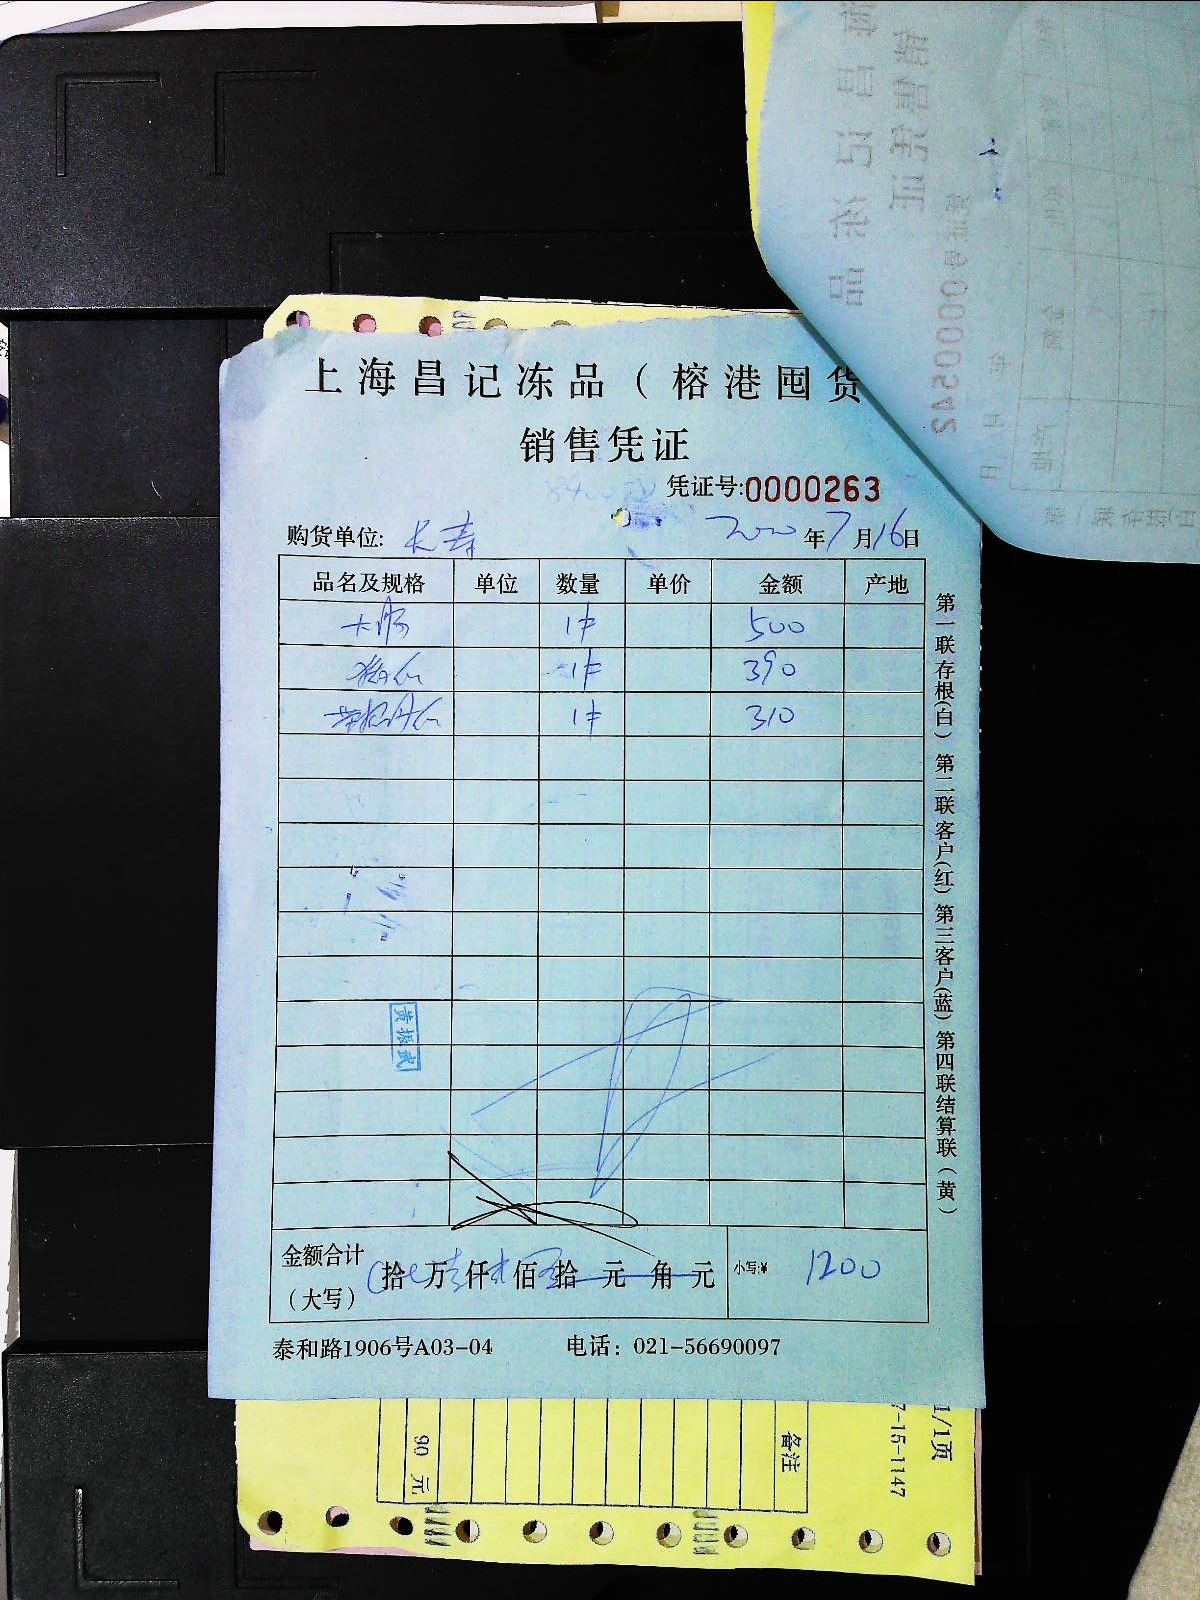 上海昌记冻品（榕港囤货
销售凭证
凭证号:0000263
购货单位: 长寿 2020年7月16日
品名及规格 单位 数量 单价 金额 产地
大肠 1件 500
1件 390
1件 310
黄振武
金额合计（大写） 拾 万 仟 佰 拾 元 角 元 小写:¥ 1200
泰和路1906号A03-04 电话：021-56690097
第一联存根(白) 第二联客户(红) 第三客户(蓝) 第四联结算联（黄）
0000542
备注
90 元
1/1页
7-15-1147